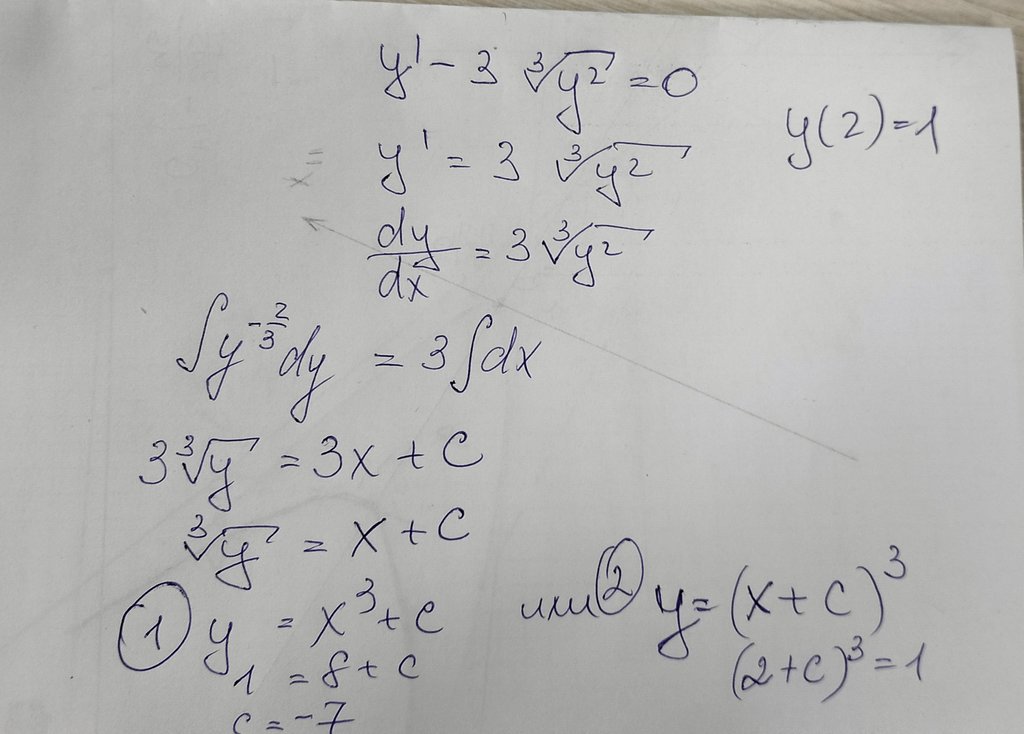 y' - 3 ∛y² = 0
y(2) = 1
y' = 3 ∛y²
x =
dy/dx = 3 ∛y²
∫ y^(-2/3) dy = 3 ∫ dx
3 ∛y = 3x + C
∛y = x + C
① y = x³ + C или ② y = (x + C)³
1 = 8 + C
(2 + C)³ = 1
C = -7